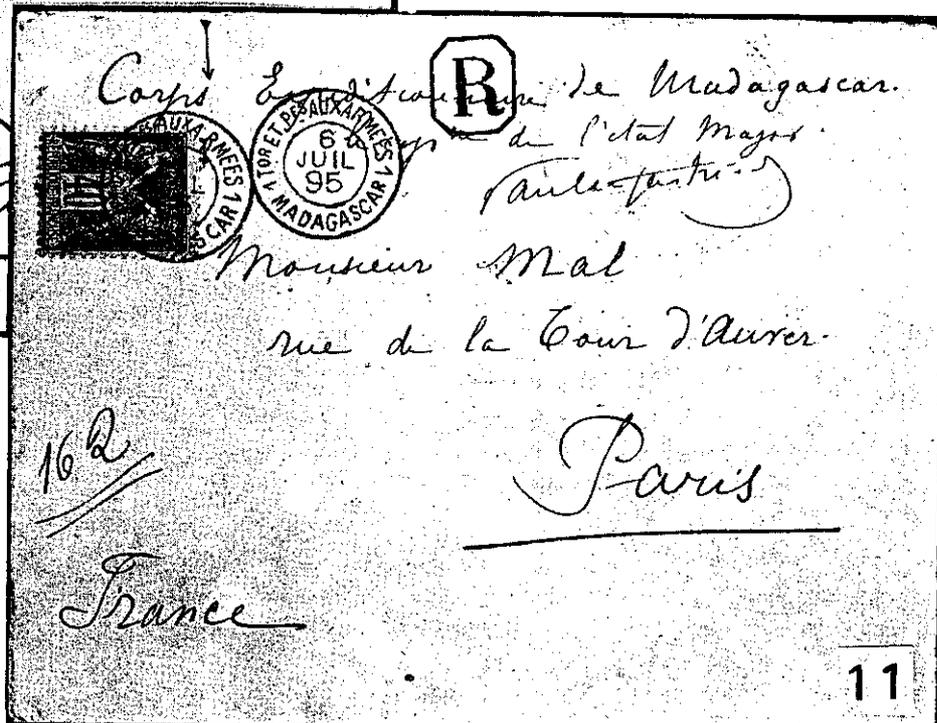 Corps Expéditionnaire de Madagascar.
R
de l'état Major.
TOR ET PES AUX ARMEES
6
JUIL
95
MADAGASCAR
AUX ARMEES
SCAR
Monsieur Mal
rue de la Tour d'Auver.
16 Q
Paris
France
11